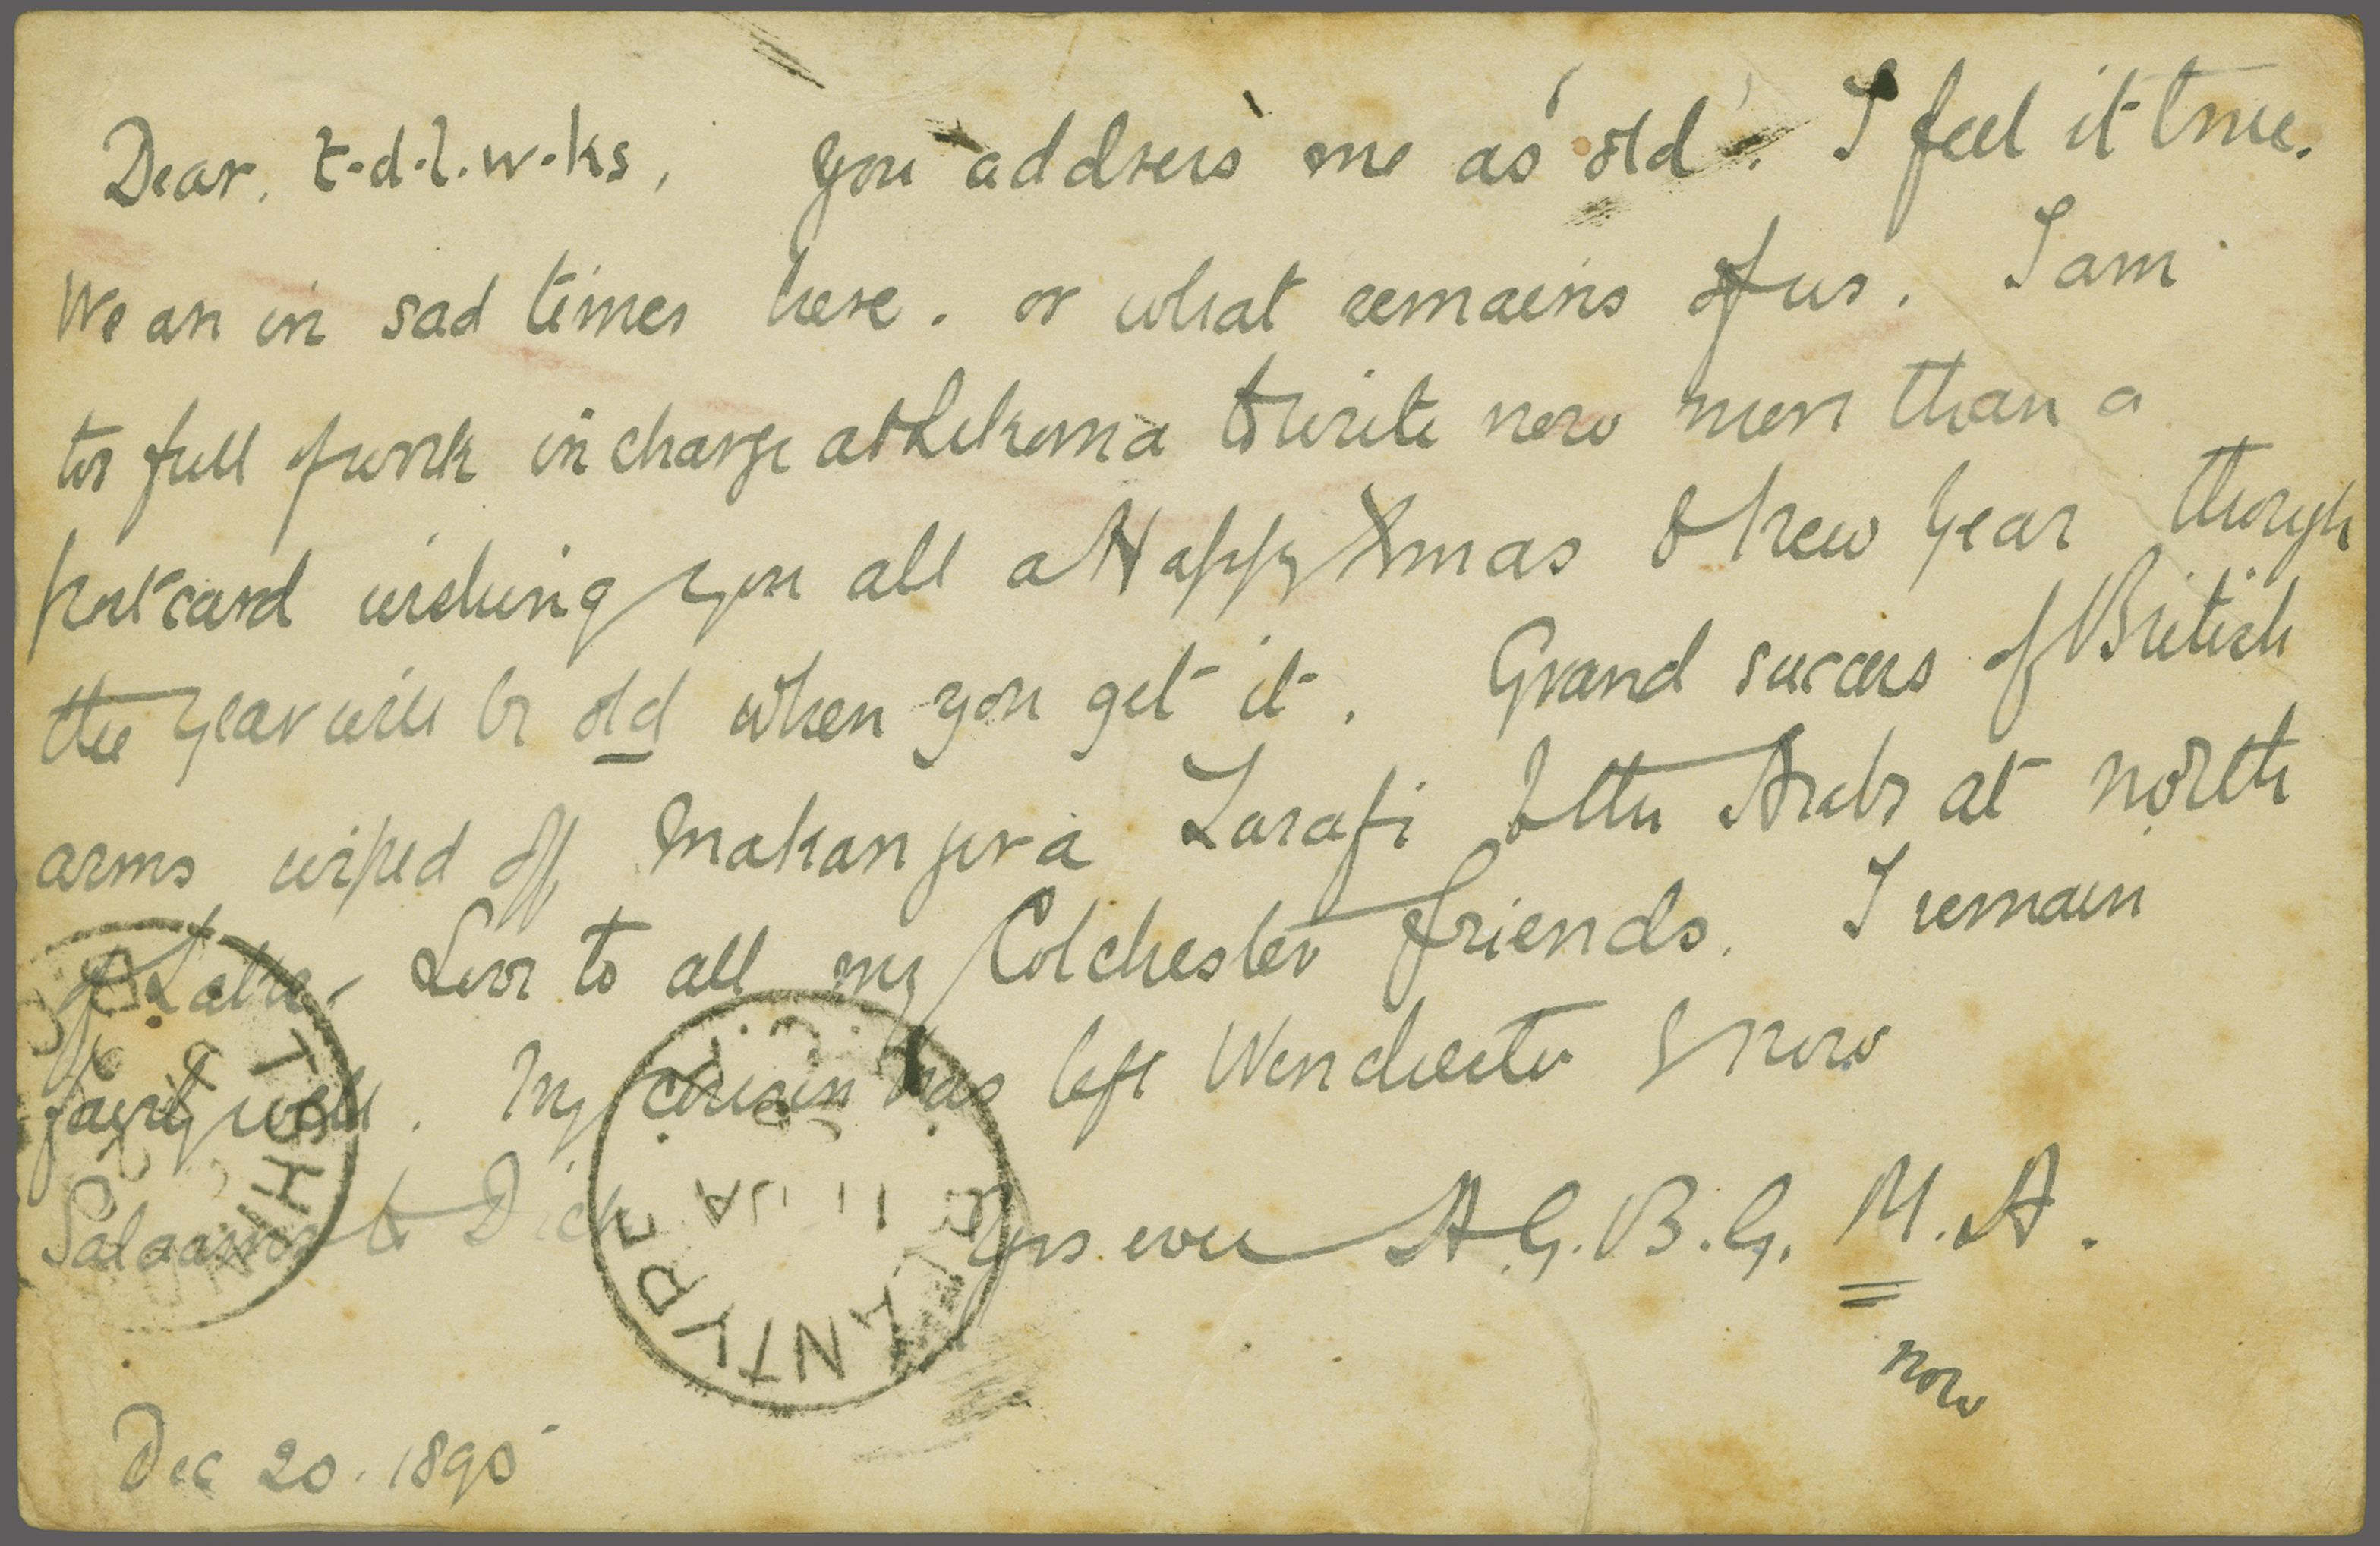 Dear. t-d-l.w-ks, you address me as 'old'. I feel it true.
We are in sad times here. or what remains of us. I am
too full of work in charge at Likoma to write now more than a
postcard wishing you all a Happy Xmas & New Year though
the year will be old when you get it. Grand success of British
arms wiped off Makanjira Zarafi & the Arabs at north
of Lake. Love to all my Colchester friends. I remain
fairly well. My cousin has left Winchester & now
Salaams to Dick Yrs ever A.G.B.G. M.A.
now
CHINDE
BLANTYRE
11 JA
Dec 20. 1895